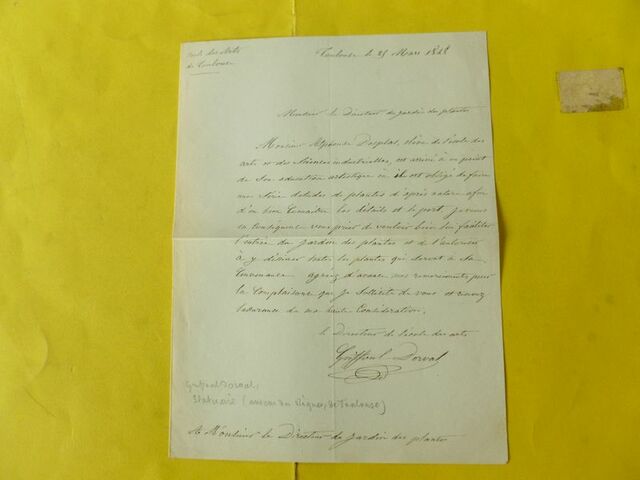 École des Arts
de Toulouse
Toulouse le 25 Mars 1848
Monsieur le Directeur du jardin des plantes
Monsieur Alphonse Desplas, élève de l'école des
arts et des Sciences industrielles, est arrivé à ce point
de Son éducation artistique où il est obligé de faire
une Série d'études de plantes d'après nature afin
d'en bien Connaitre les détails et le port. je viens
en Conséquence vous prier de vouloir bien lui faciliter
l'entrée du jardin des plantes et de l'autoriser
à y dessiner toutes les plantes qui seront à Sa
Convenance. agréez d'avance mes remerciements pour
la Complaisance que je Sollicite de vous et recevez
l'assurance de ma haute Considération.
le Directeur de l'école des arts
Griffoul-Dorval
Griffoul Dorval,
Statuaire (du Risques, de Toulouse)
A Monsieur le Directeur du jardin des plantes